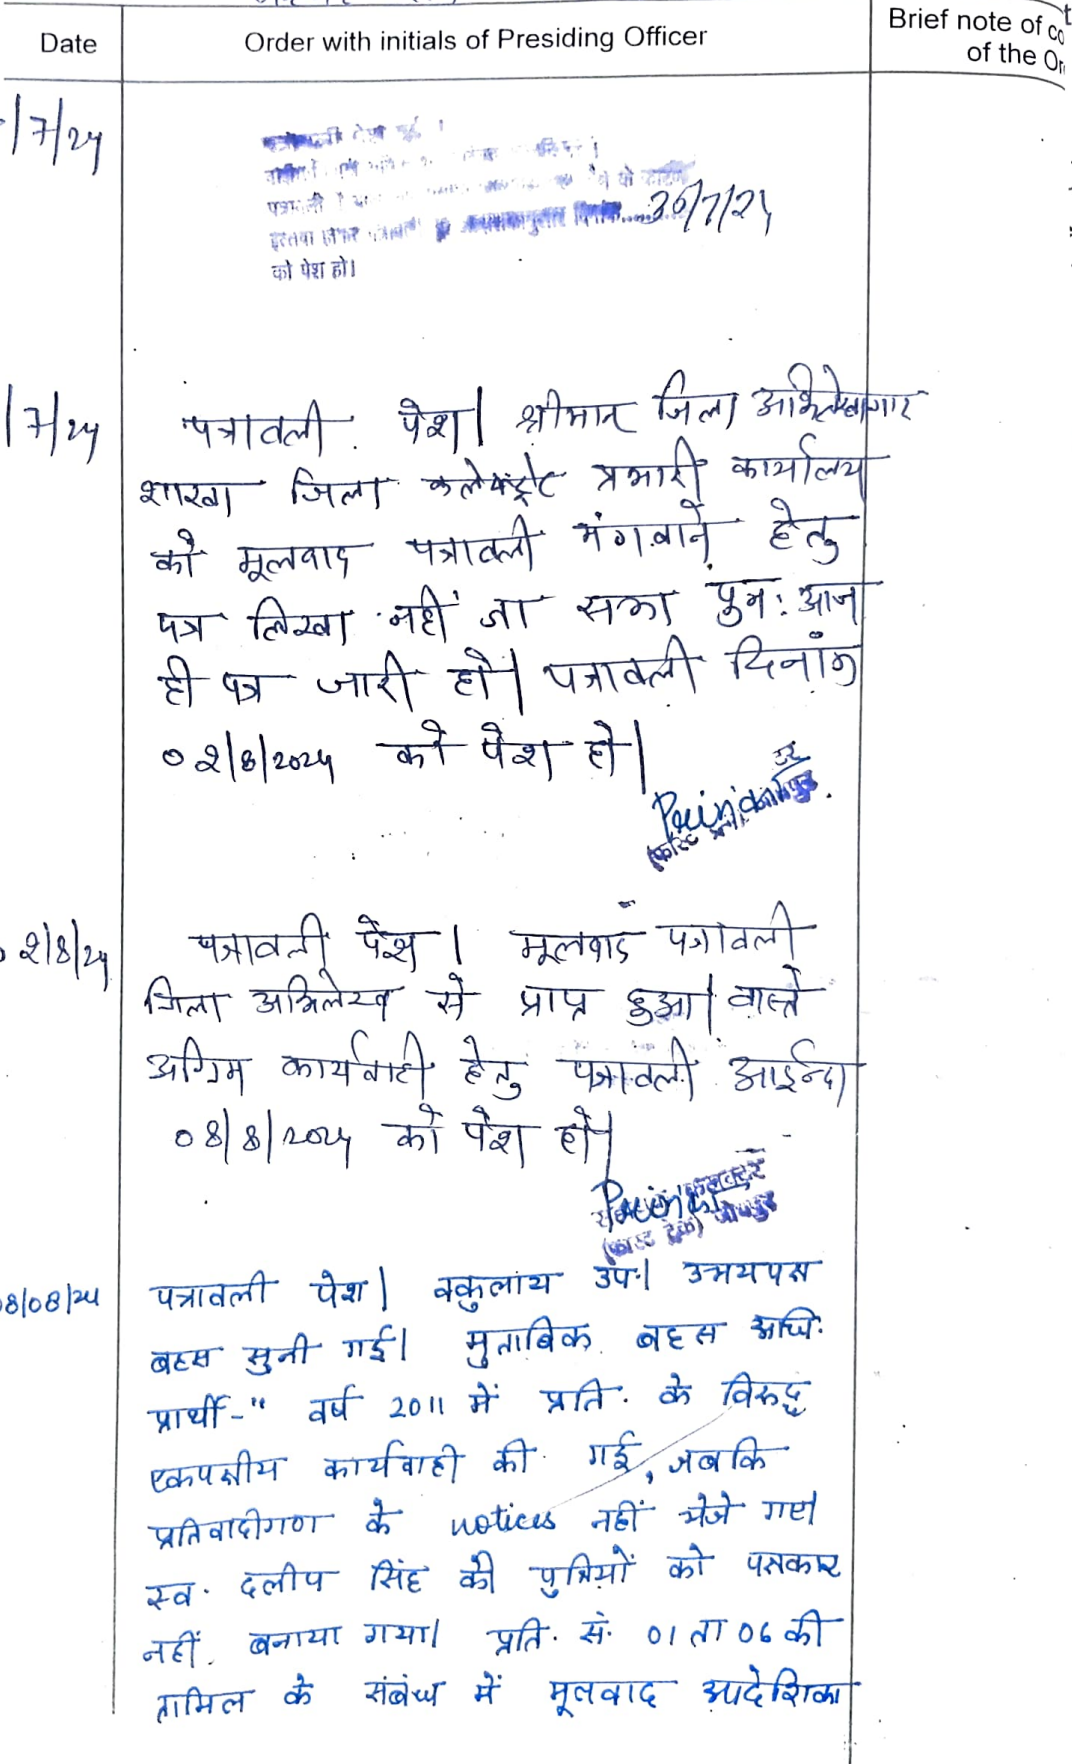 Date
Order with initials of Presiding Officer
Brief note of
of the
/7/24
30/7/24
को पेश हो।
/7/24
पत्रावली पेश। श्रीमान जिला अभिलेखागार
शाखा जिला कलेक्ट्रेट प्रभारी कार्यालय
को मूलवाद पत्रावली मंगवाने हेतु
पत्र लिखा नहीं जा सका पुनः आज
ही पत्र जारी हो। पत्रावली दिनांक
02/8/2024 को पेश हो।
02/8/24
पत्रावली पेश। मूलवाद पत्रावली
जिला अभिलेख से प्राप्त हुआ। वास्ते
अग्रिम कार्यवाही हेतु पत्रावली आईन्दा
08/8/2024 को पेश हो।
कलक्टर
(फास्ट ट्रेक)
08/08/24
पत्रावली पेश। वकुलांय उप.। उभयपक्ष
बहस सुनी गई। मुताबिक बहस अधि.
प्रार्थी-" वर्ष 2011 में प्रति. के विरुद्ध
एकपक्षीय कार्यवाही की गई, जबकि
प्रतिवादीगण के notices नहीं भेजे गए।
स्व. दलीप सिंह की पुत्रियों को पक्षकार
नहीं बनाया गया। प्रति. सं. 01 ता 06 की
तामिल के संबंध में मूलवाद आदेशिका